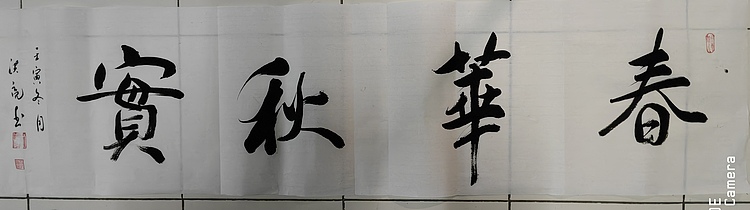 春華秋實
壬寅冬月
洪亮书
DE
Camera